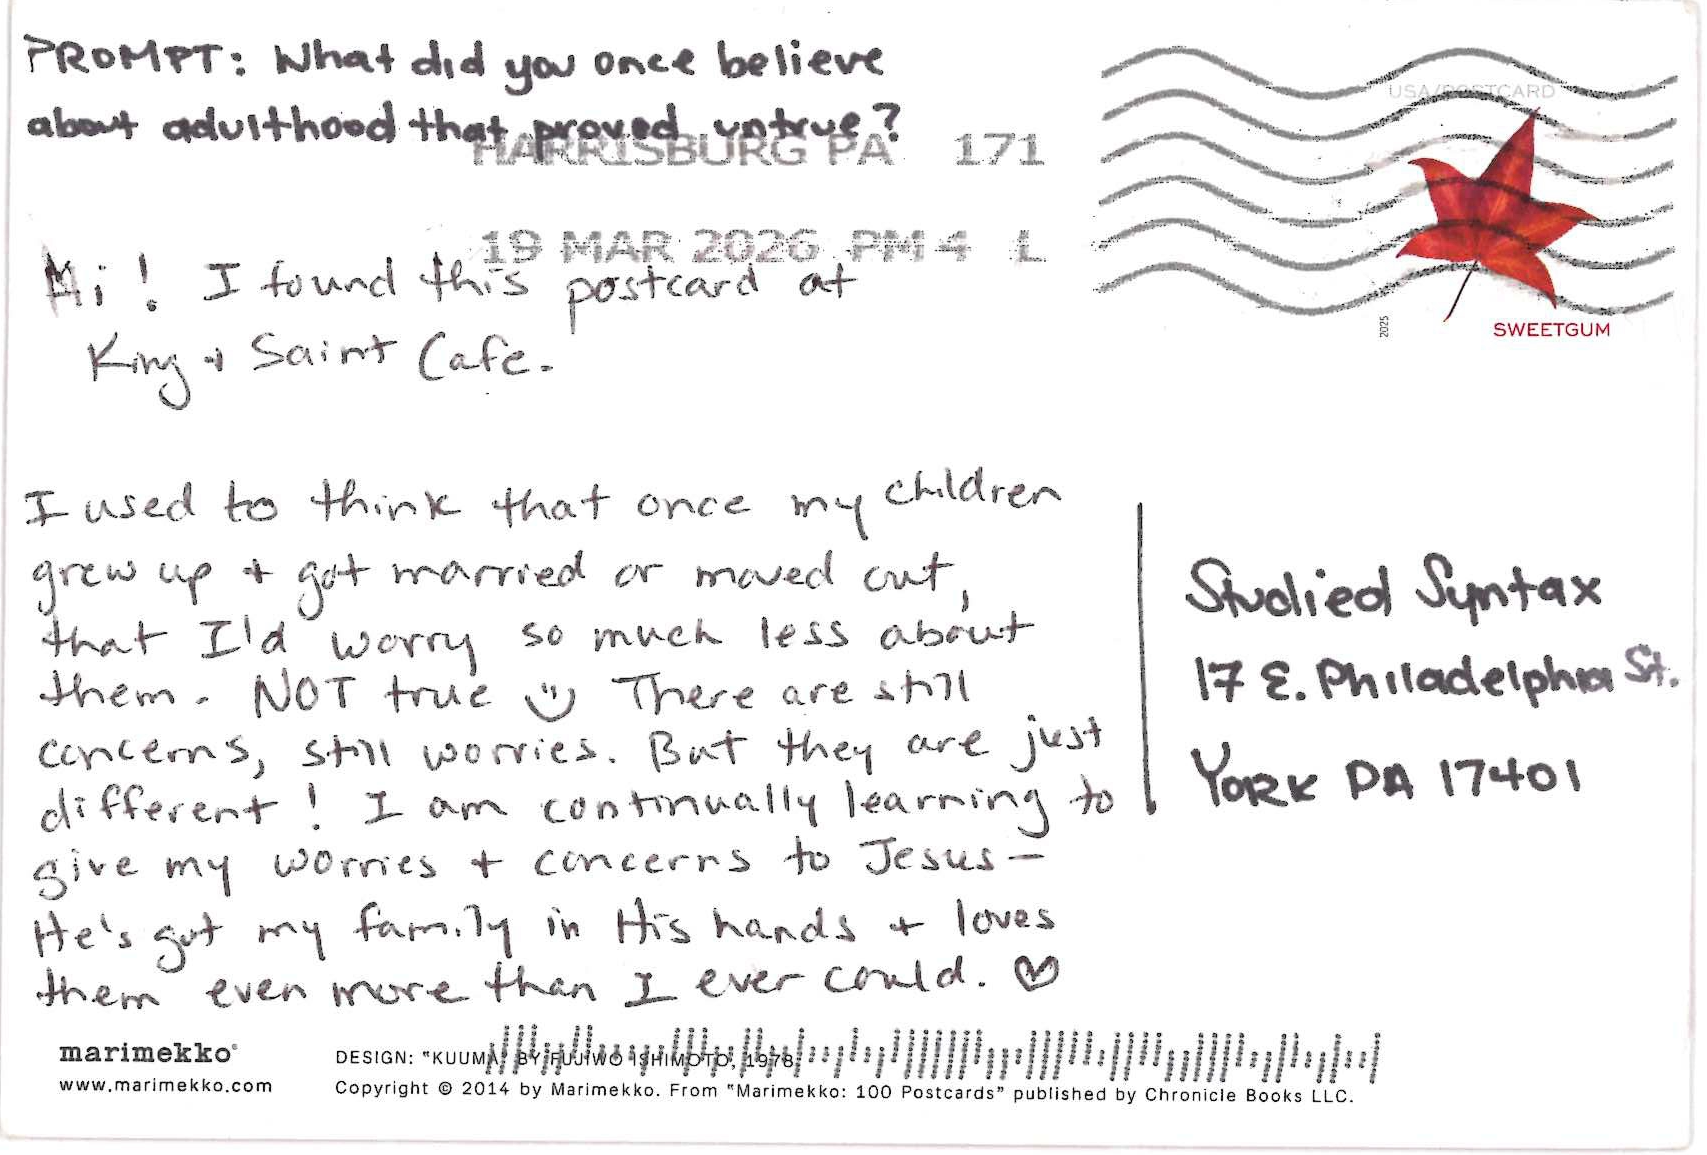 PROMPT: What did you once believe
about adulthood that proved untrue?
HARRISBURG PA 171
19 MAR 2026 PM 4 L
USA/POSTCARD
2025
SWEETGUM
Hi! I found this postcard at
King + Saint Cafe.
I used to think that once my children
grew up + got married or moved out,
that I'd worry so much less about
them. NOT true There are still
concerns, still worries. But they are just
different! I am continually learning to
give my worries + concerns to Jesus—
He's got my family in His hands + loves
them even more than I ever could. ♡
Studied Syntax
17 E. Philadelphia St.
YORK PA 17401
marimekko®
www.marimekko.com
DESIGN: "KUUMA" BY FUJIWO ISHIMOTO, 1978
Copyright © 2014 by Marimekko. From "Marimekko: 100 Postcards" published by Chronicle Books LLC.